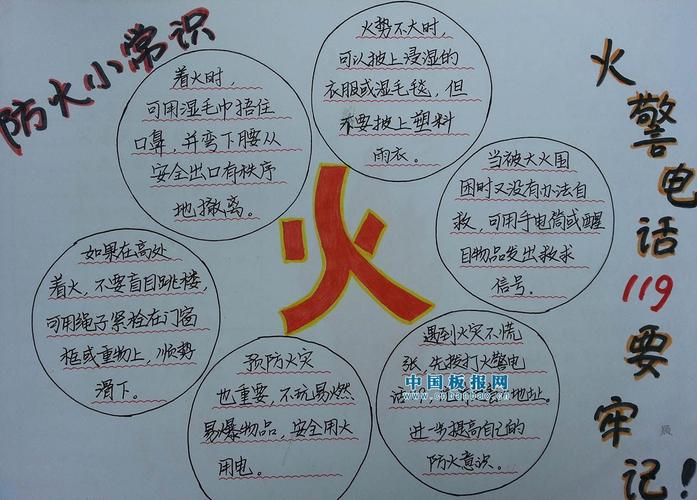 防火小常识
着火时，
可用湿毛巾捂住
口鼻，并弯下腰从
安全出口有秩序
地撤离。
火势不大时，
可以披上浸湿的
衣服或湿毛毯，但
不要披上塑料
雨衣。
当被大火围
困时又没有办法自
救，可用手电筒或醒
目物品发出救求
信号。
如果在高处
着火，不要盲目跳楼，
可用绳子紧栓在门窗
框或重物上，顺势
滑下。
火
预防火灾
也重要，不玩易燃
易爆物品，安全用火
用电。
遇到火灾不慌
张，先拨打火警电
话
地址。
进一步提高自己的
防火意识。
火警电话119要牢记！
中国板报网
www.cnbanbao.cn